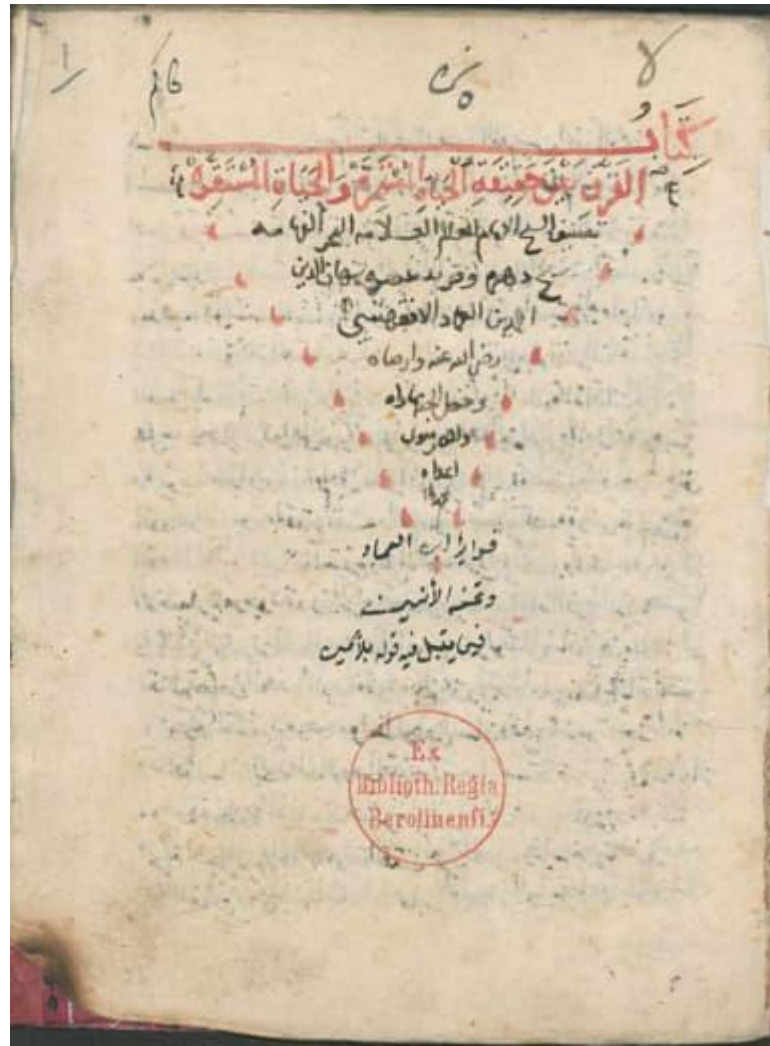 كتاب
الفرق بين حقيقة الحياة المستمرة والحياة المستقرة
تصنيف الشيخ الامام العالم العلامه البحر الفهامه
دهره وفريد عصره شهاب الدين
ابن العماد الاقفهسي
رضي الله عنه وارضاه
وجعل الجنه ماواه
اعداه
فوايد ابن العماد
وتحفه الأنيس
فيمن يقبل فيه قوله بلا يمين
Ex
Biblioth. Regia
Berolinensi.